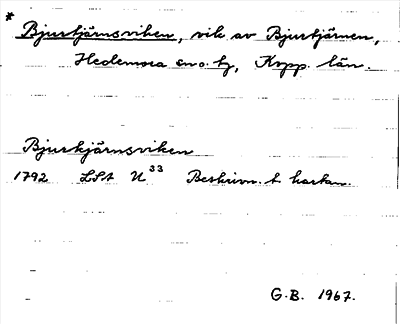 * Bjurtjärnsviken, vik av Bjurtjärnen,
Hedemora sn o. hg, Kopp. län.
Bjurkjärnsviken
1792 LSA U33 Beskrivn. t. kartan.
G.B. 1967.